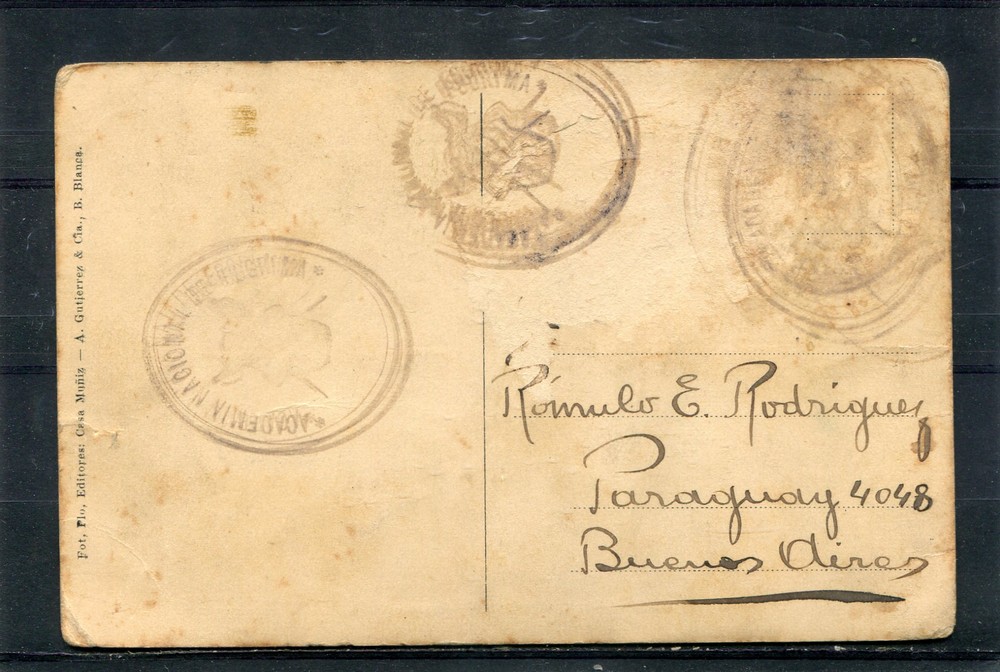 Fot, Plo, Editores: Casa Muñiz — A. Gutierrez & Cia., B. Blanca.
ACADEMIA NACIONAL DE
ACADEMIA NACIONAL
Rómulo E. Rodriguez
Paraguay 4048
Buenos Aires